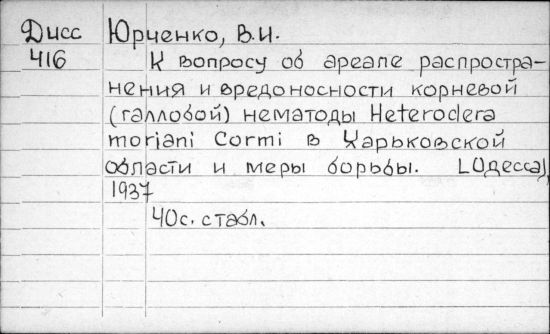 Дисс Юрченко, В.И.
416 К вопросу об ареале распростра-
нения и вредоносности корневой
(галловой) нематоды Heterodera
morjani Cormi в Харьковской
области и меры борьбы. [Одесса],
1937
40с. стабл.